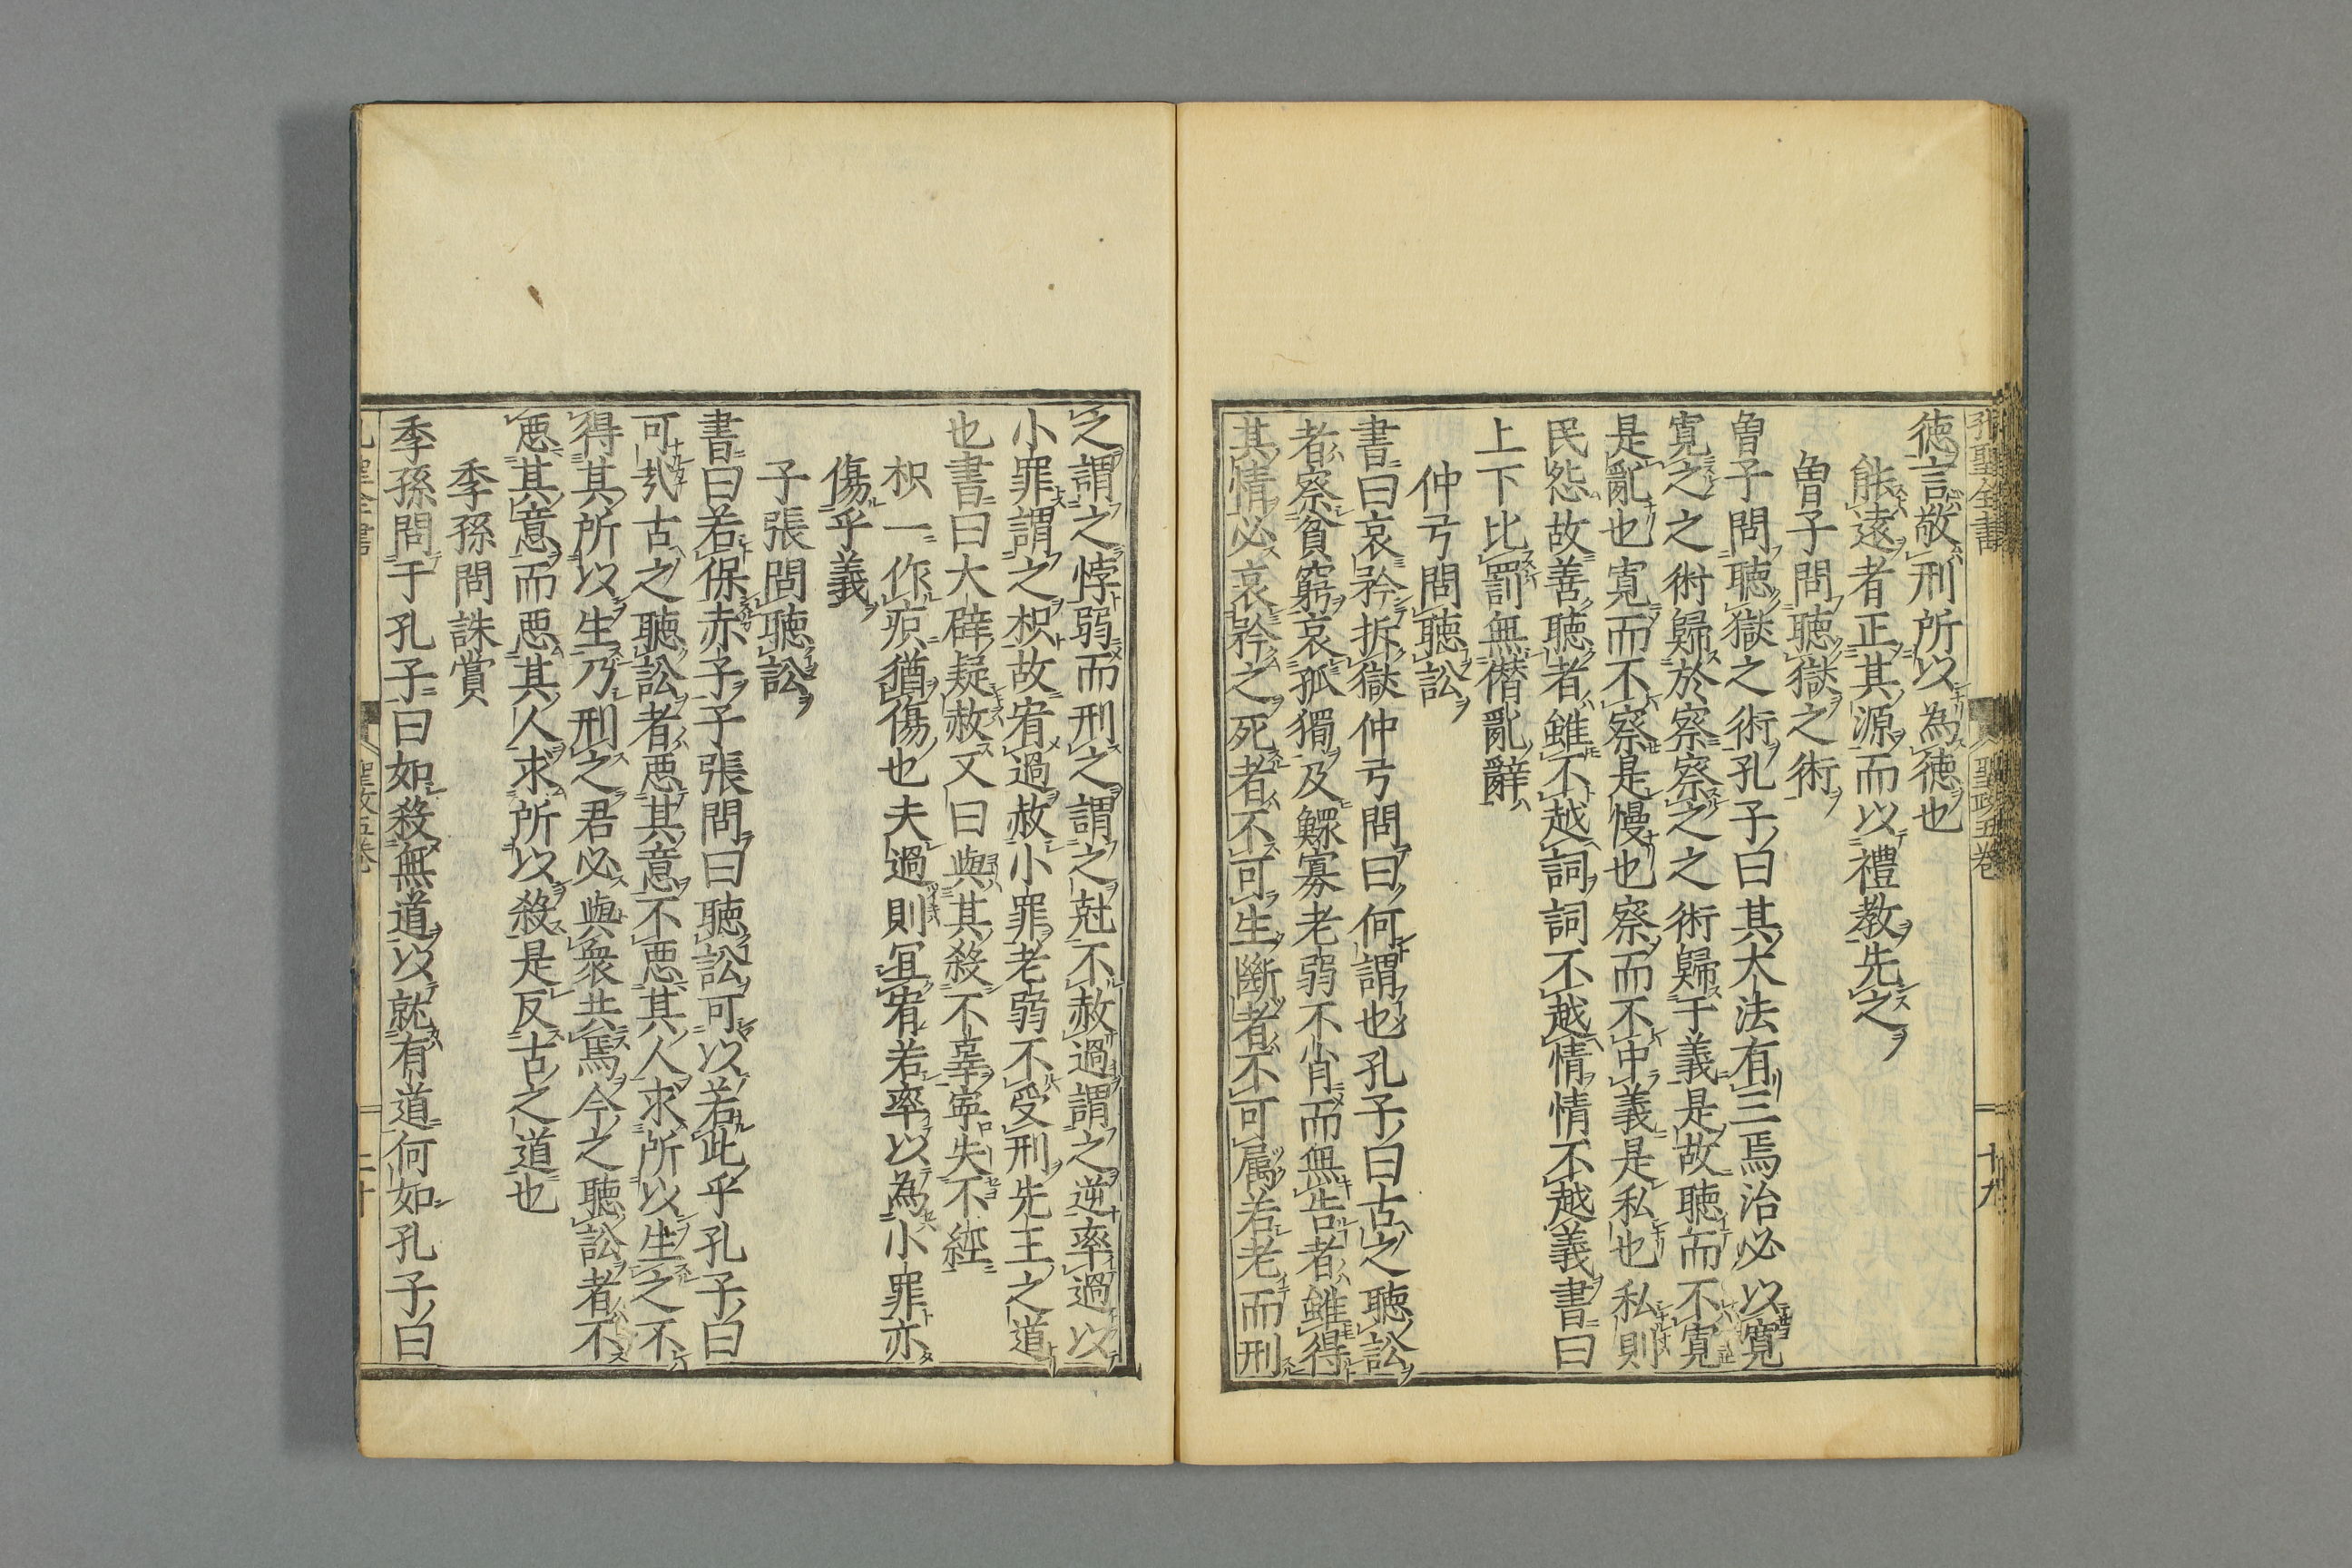 孔聖全書　聖政五巻　十九
徳言敬刑所以為徳也
能遠者正其源而以禮教先之
曽子問聴獄之術
曽子問聴獄之術孔子曰其大法有三焉治必以寛
寛之之術歸於察察之之術歸于義是故聴而不寛
是亂也寛而不察是慢也察而不中義是私也私則
民怨故善聴者雖不越詞詞不越情情不越義書曰
上下比罰無僣亂辭
仲弓問聴訟
書曰哀矜折獄仲弓問曰何謂也孔子曰古之聴訟
者察貧窮哀孤獨及鰥寡老弱不肖而無告者雖得
其情必哀矜之死者不可生斷者不可属若老而刑
之謂之悖弱而刑之謂之尅不赦過謂之逆率過以
小罪謂之枳故宥過赦小罪老弱不受刑先王之道
也書曰大辟疑赦又曰與其殺不辜寧失不經
枳一作疻猶傷也夫過則冝宥若率以為小罪亦
傷乎義
子張問聴訟
書曰若保赤子子張問曰聴訟可以若此乎孔子曰
可哉古之聴訟者惡其意不惡其人求所以生之不
得其所以生乃刑之君必與衆共焉今之聴訟者不
惡其意而惡其人求所以殺是反古之道也
季孫問誅賞
季孫問于孔子曰如殺無道以就有道何如孔子曰
孔聖全書　聖政五巻　二十